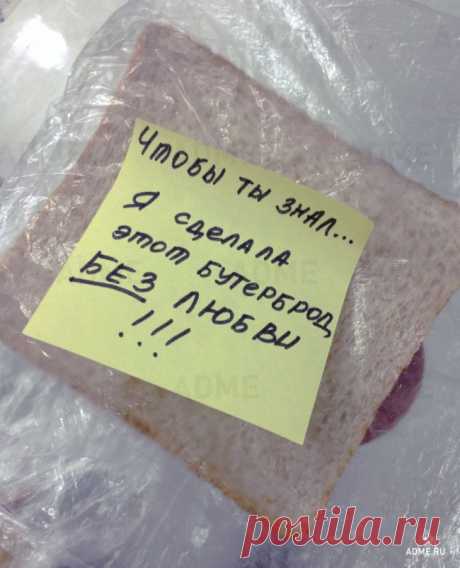 Чтобы ты знал...
Я сделала
этот бутерброд
БЕЗ любви
!!!
ADME
ADME
postila.ru
ADME.RU